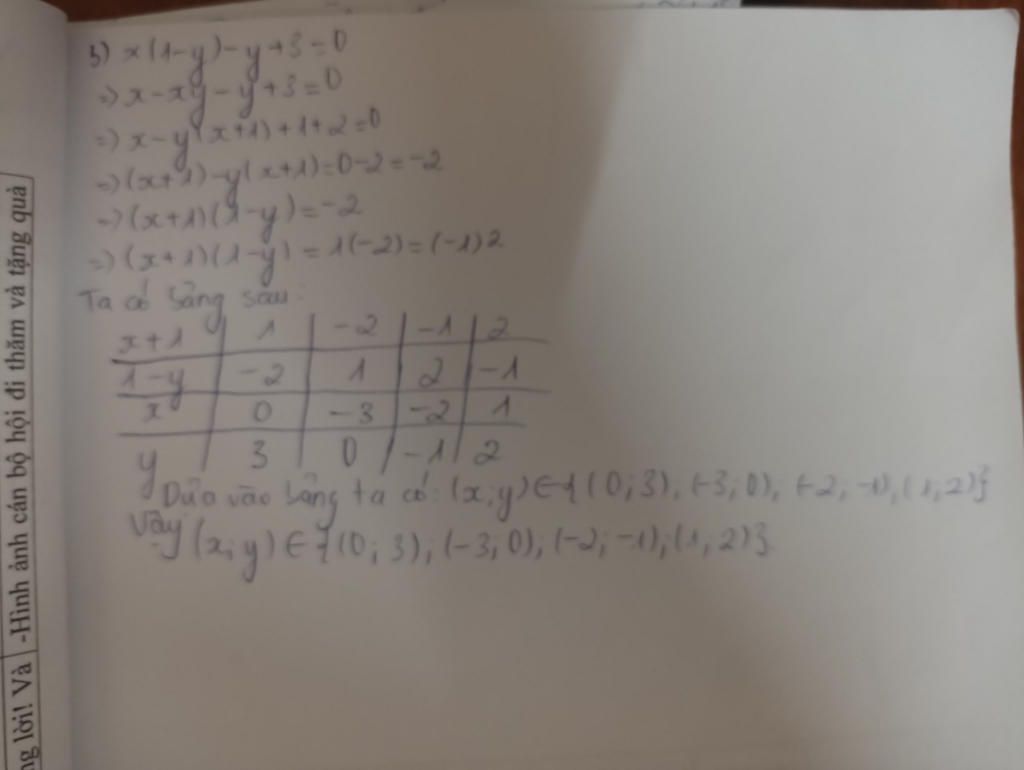 b) x(1-y)-y+3=0
=) x-xy-y+3=0
=) x-y(x+1)+1+2=0
=) (x+1)-y(x+1)=0-2=-2
=) (x+1)(1-y)=-2
=) (x+1)(1-y)=1(-2)=(-1)2
Ta có bảng sau:
x+1 | 1 | -2 | -1 | 2
1-y | -2 | 1 | 2 | -1
x | 0 | -3 | -2 | 1
y | 3 | 0 | -1 | 2
Dựa vào bảng ta có: (x;y)∈{(0;3),(-3;0),(-2;-1),(1;2)}
Vậy (x;y)∈{(0;3);(-3;0);(-2;-1);(1;2)}
-Hình ảnh cán bộ hội đi thăm và tặng quà
ng lời! Và